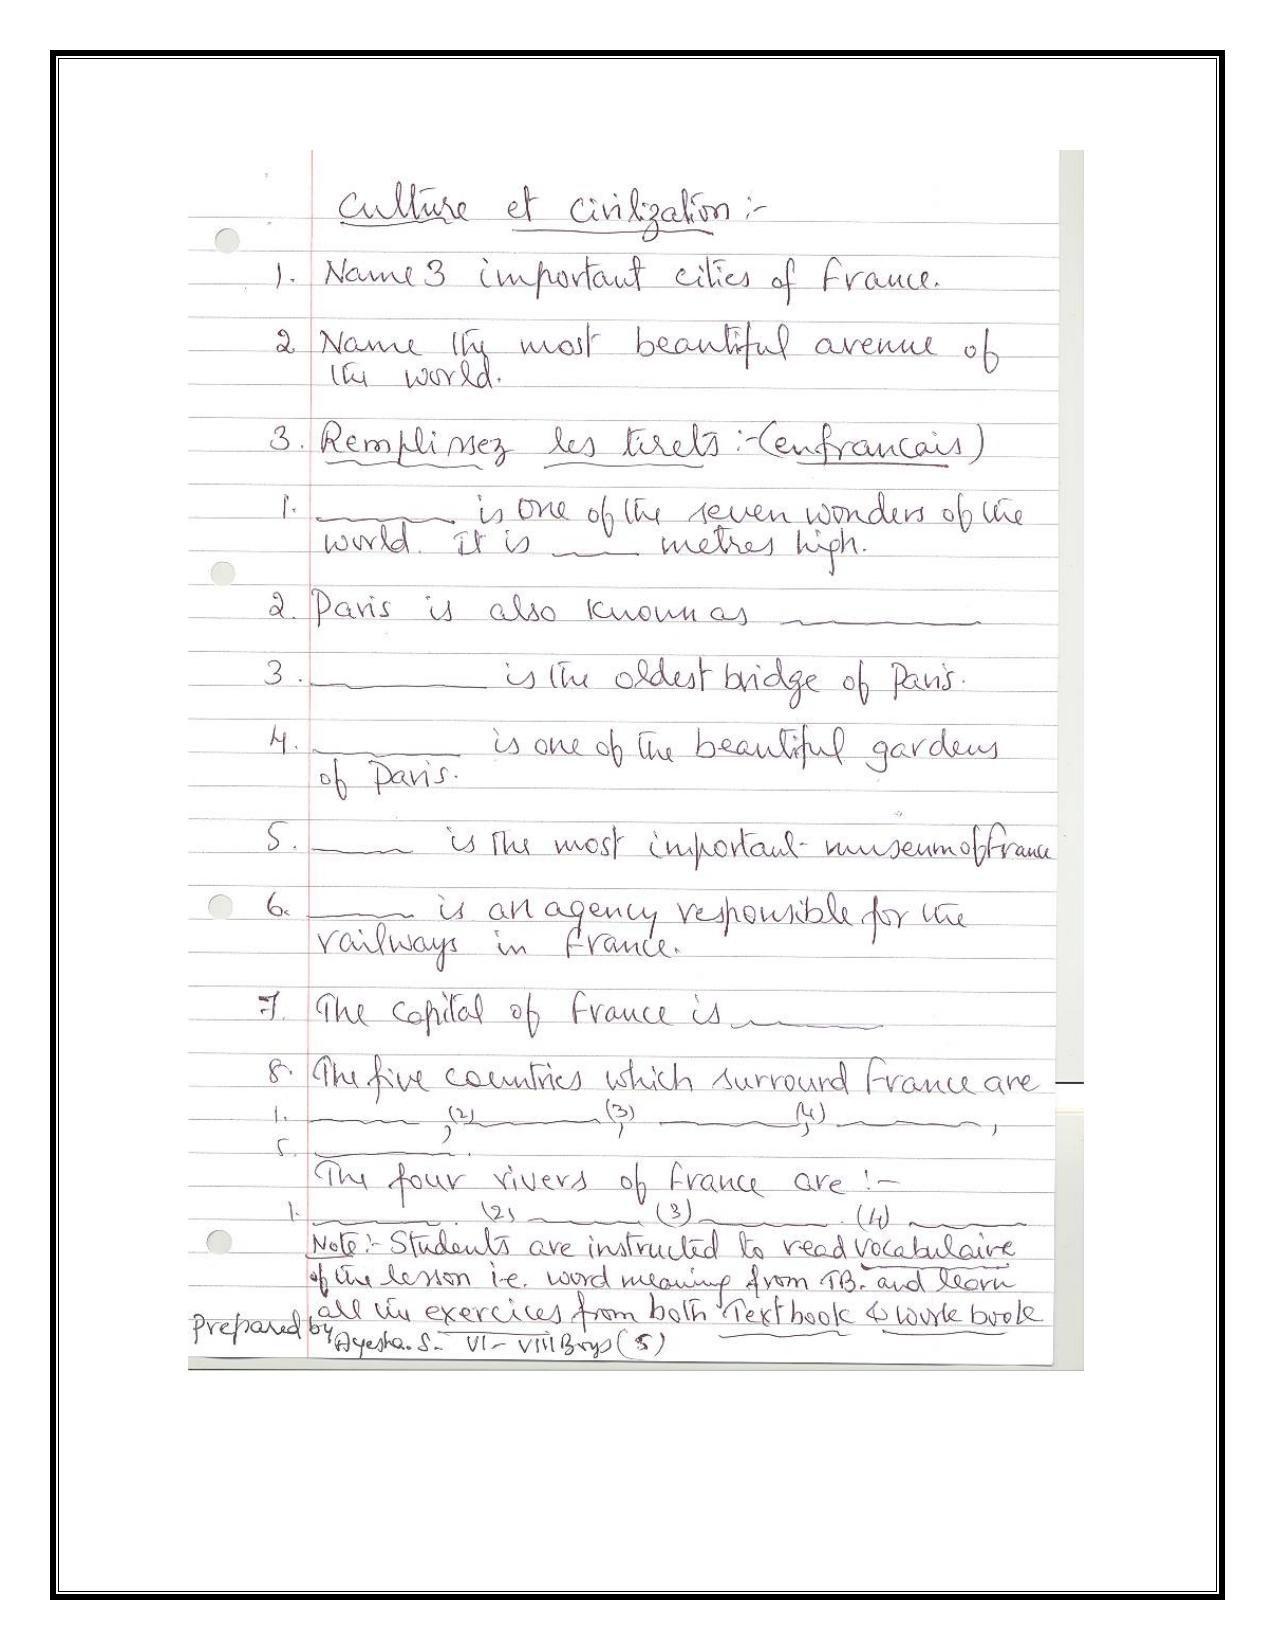 Culture et Civilization :-
1. Name 3 important cities of France.
2 Name the most beautiful avenue of
the world.
3. Remplissez les tirets :- (en francais)
1. ________ is one of the seven wonders of the
world. It is ____ metres high.
2. Paris is also known as __________
3. __________ is the oldest bridge of Paris.
4. ________ is one of the beautiful gardens
of Paris.
5. ______ is the most important museum of France
6. ______ is an agency responsible for the
railways in France.
7. The capital of France is ________
8. The five countries which surround France are
1. ______, (2) ______, (3) ______, (4) ______,
5. ________.
The four rivers of France are :-
1. ______. (2) ______ (3) ______. (4) ______
Note :- Students are instructed to read vocabulaire
of the lesson i.e. word meaning from TB. and learn
all the exercices from both Textbook & work book
Prepared by Ayesha. S. VI - VIII Boys (S)